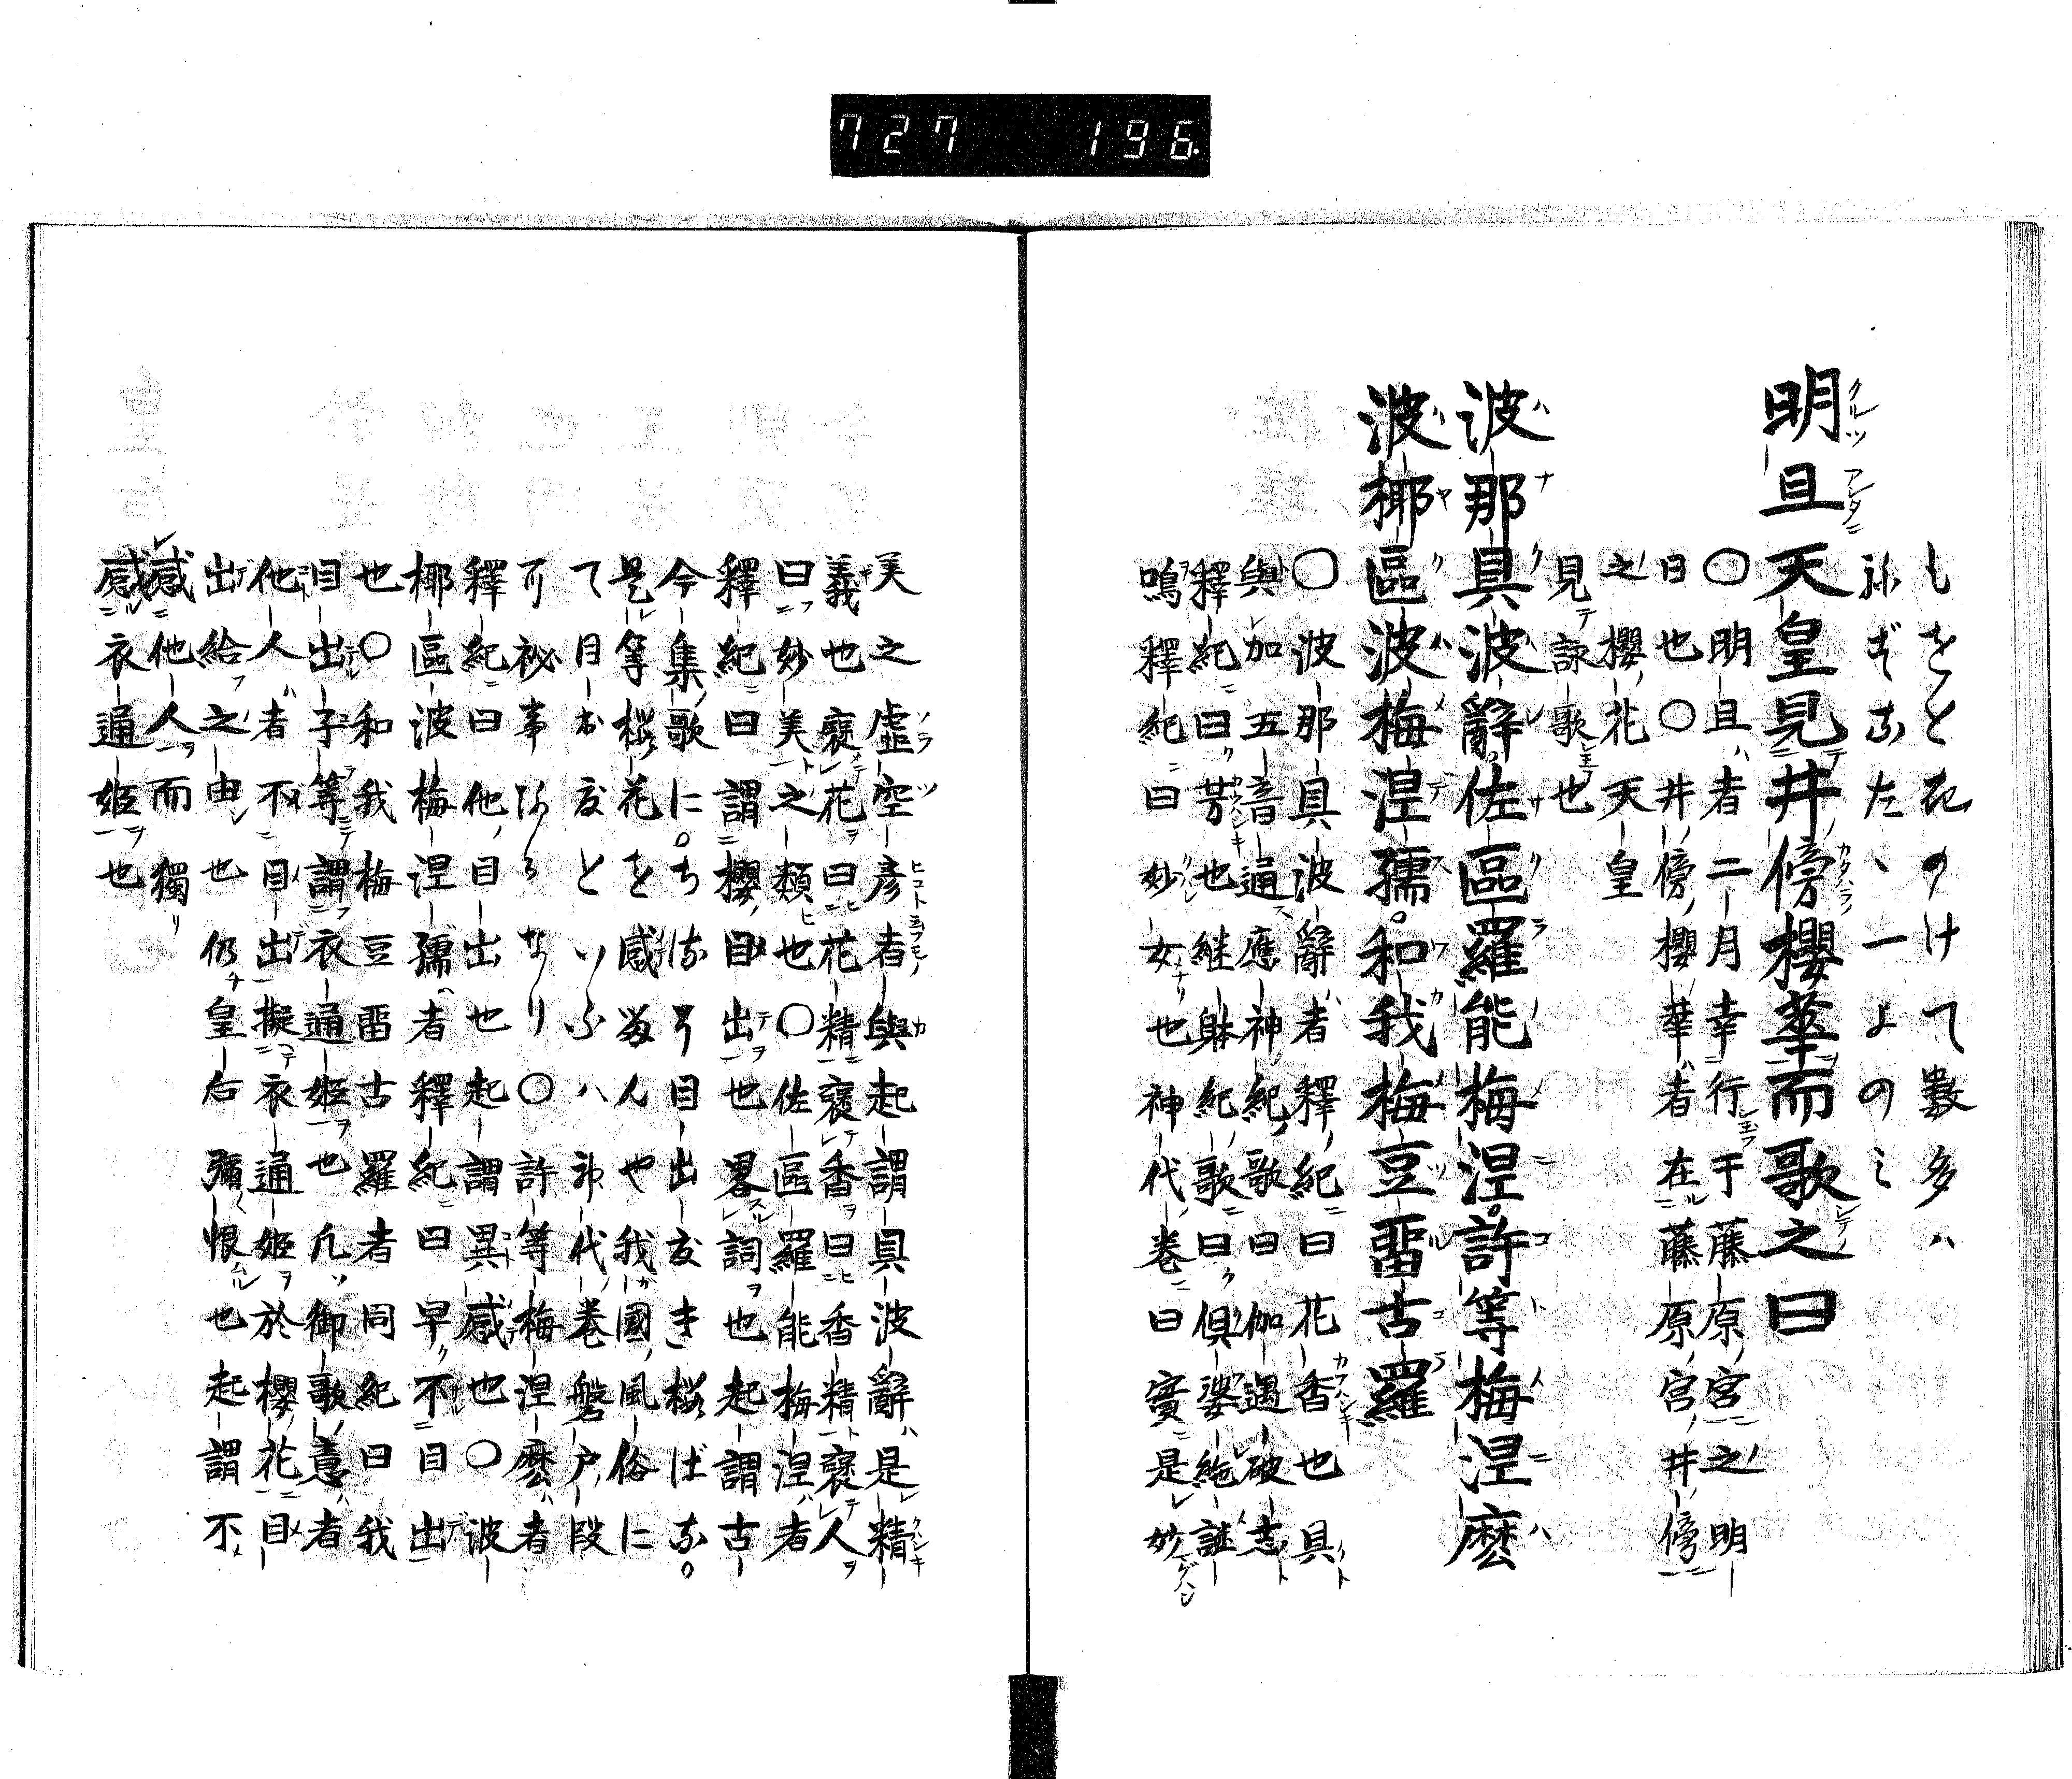 727 196
もをときのけて数多ハ
ねずあた丶一よのミ
明旦天皇見井傍櫻華而歌之曰
〇明旦者二月幸行于藤原宮之明
日也〇井傍櫻華者在藤原宮井傍
之櫻花天皇
見詠歌也
波那具波辭佐區羅能梅涅許等梅涅麼
波椰區波梅涅孺和我梅豆留古羅
〇波那具波辭者釋紀曰花香也具
與加五音通應神紀歌曰伽遇破志
釋紀曰芳也継躰紀歌曰倶婆絁謎
鳴釋紀曰妙女也神代巻曰實是妙
美之虚空彦者與起謂具波辭是精
義也褒花曰花精褒香曰香精褒人
曰妙美之類也〇佐區羅能梅涅者
釋紀曰謂櫻目出也畧詞也起謂古
今集歌に。ち
是等桜花を感翁人や我國風俗に
て目出度といふハ神代巻盤戸段
可祕事
〇許等梅涅麼者
釋紀曰他目出也起謂異感也〇波
椰區波梅涅孺者釋紀曰早不目出
也〇和我梅豆留古羅者同紀曰我
目出子等謂衣通姫也凡御歌意者
他人者不目出擬衣通姫於櫻花目
出給之由也仍皇后彌恨也起謂不
感他人而獨
感衣通姫也